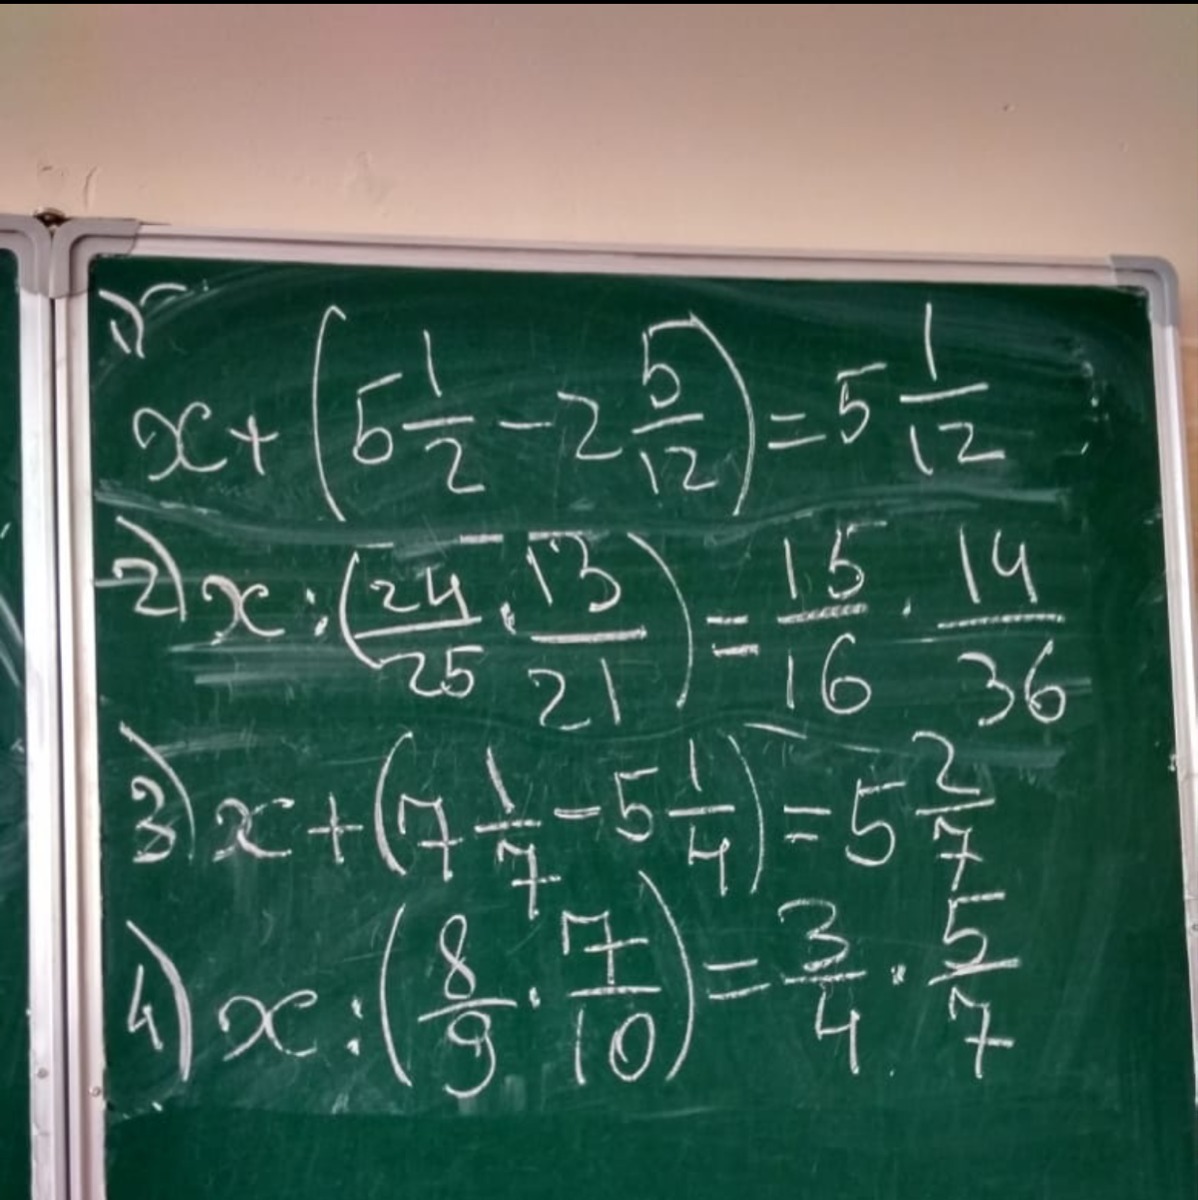 1)
x + (5 1/2 - 2 5/12) = 5 1/12
2) x : (24/25 · 13/21) = 15/16 · 14/36
3) x + (7 1/7 - 5 1/4) = 5 2/7
4) x : (8/9 · 7/10) = 3/4 · 5/7